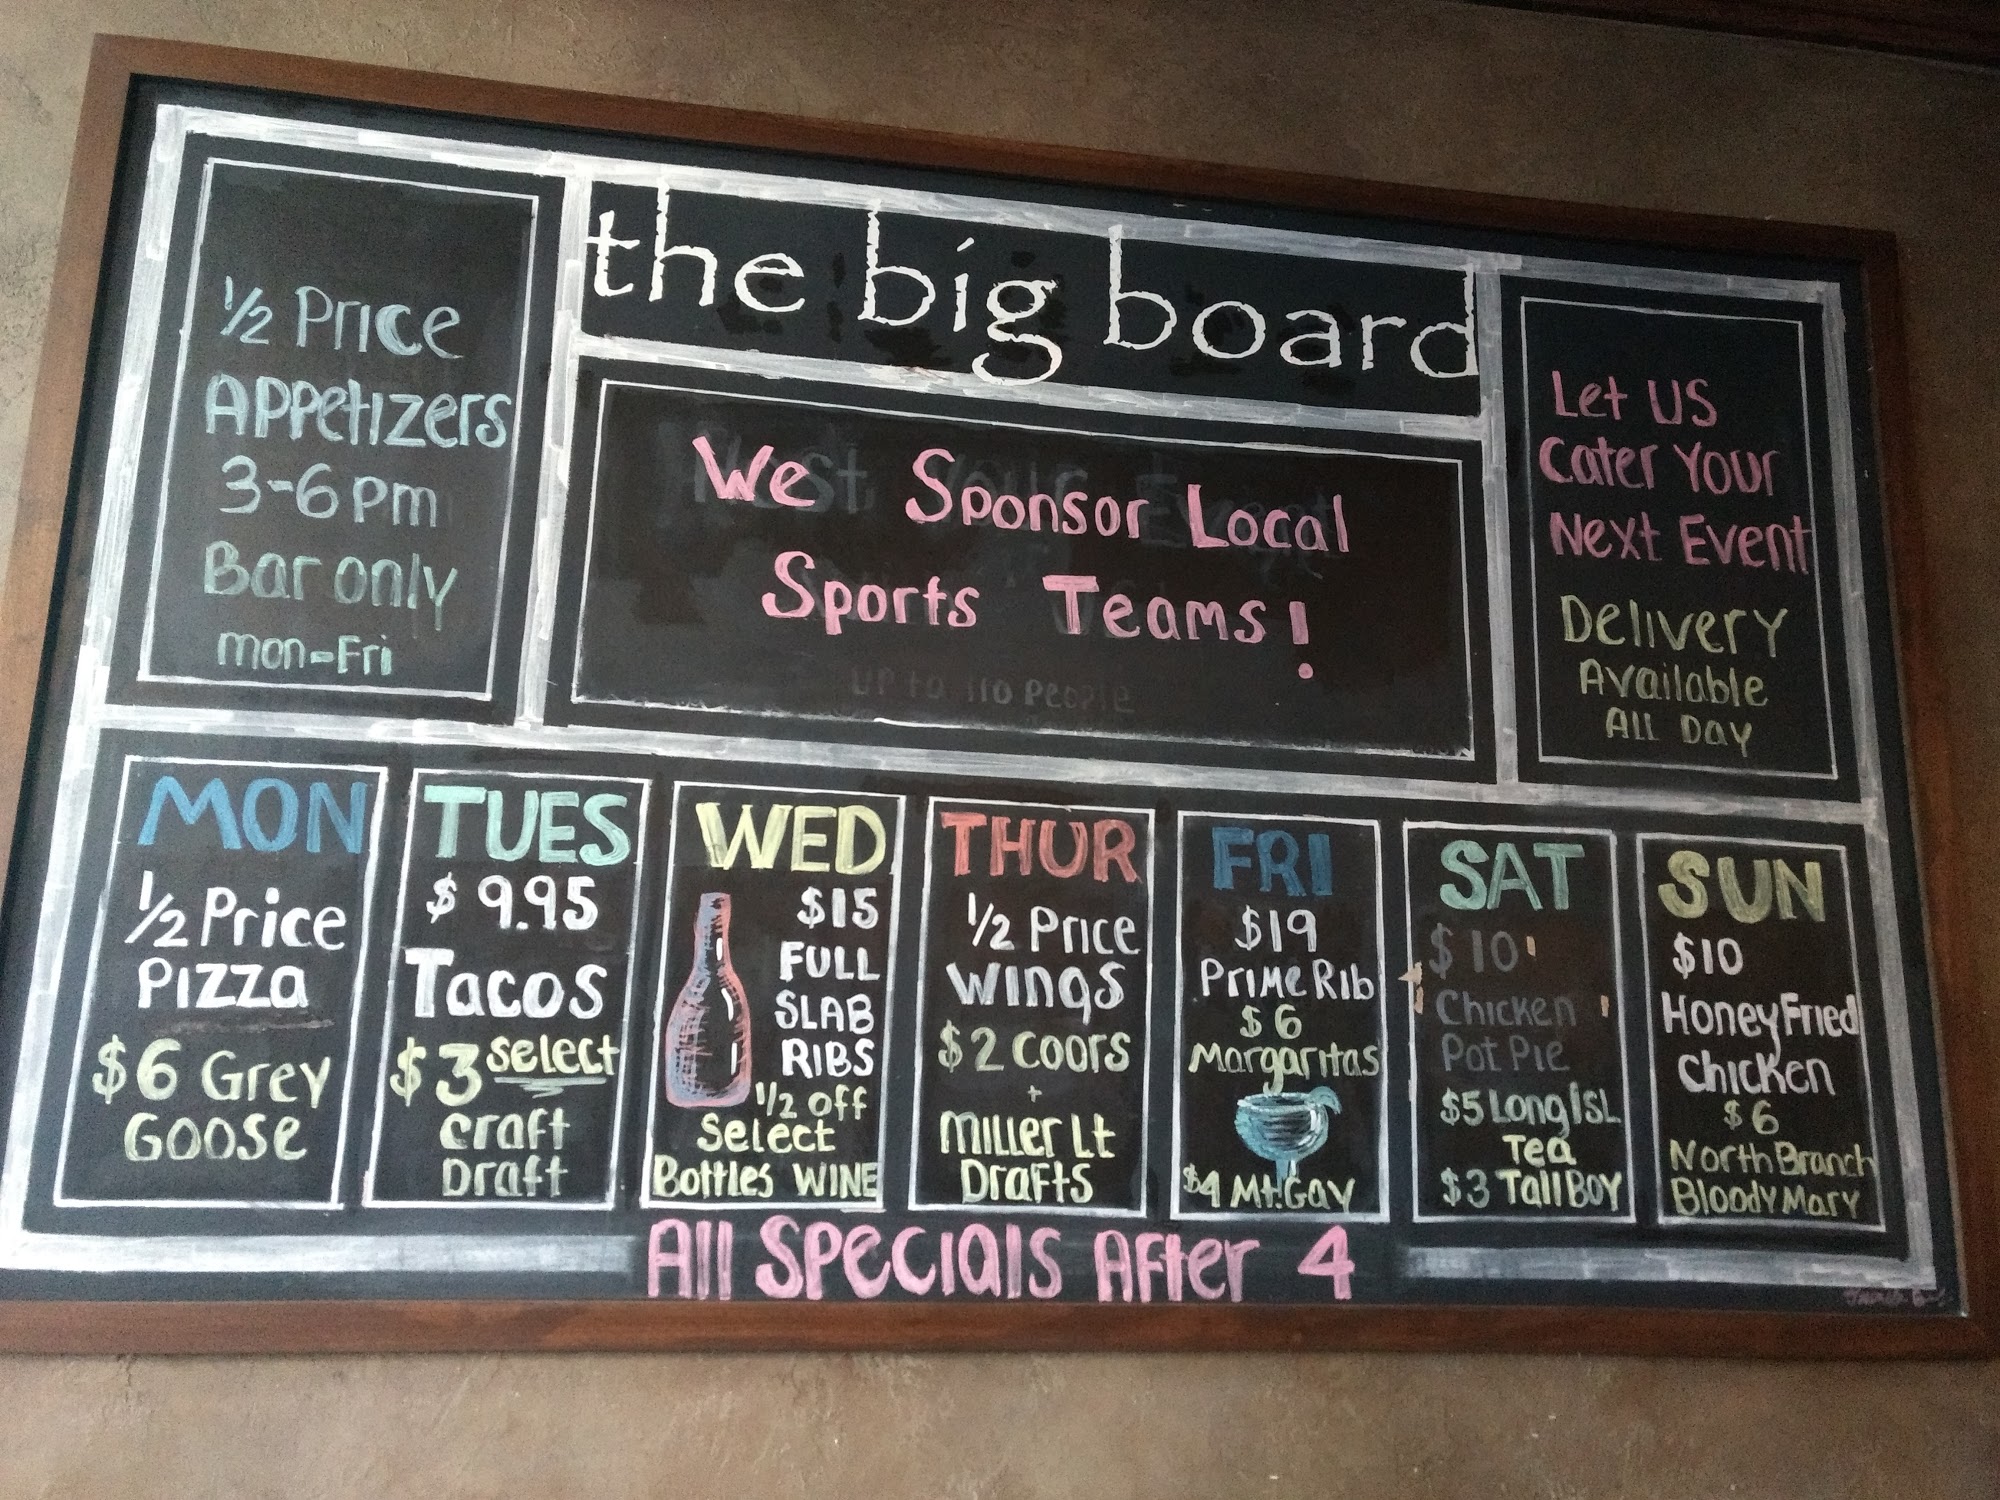 the big board
½ Price
Appetizers
3-6pm
Bar only
mon-Fri
We Sponsor Local
Sports Teams!
up to 110 People
Let US
Cater Your
Next Event
Delivery
Available
All Day
MON
½ Price
Pizza
$6 Grey
Goose
TUES
$9.95
Tacos
$3 select
craft
Draft
WED
$15
FULL
SLAB
RIBS
½ off
Select
Bottles WINE
THUR
½ Price
Wings
$2 coors
+
Miller Lt
Drafts
FRI
$19
Prime Rib
$6
Margaritas
$4 Mt.Gay
SAT
$10
Chicken
Pot Pie
$5 Long Isl
Tea
$3 Tall Boy
SUN
$10
Honey Fried
Chicken
$6
North Branch
Bloody Mary
All Specials After 4